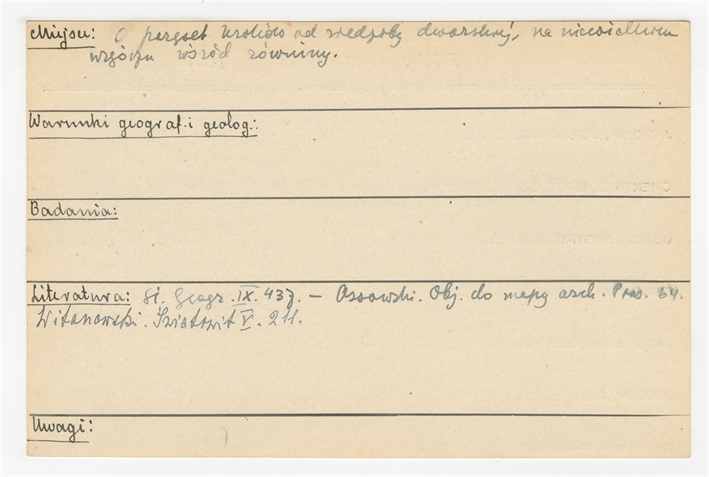 Miejsce: O paręset kroków od siedziby dworskiej, na niewielkim
wzgórzu wśród równiny.
Warunki geograf. i geolog.:
Badania:
Literatura: Sł. Geogr. IX. 437. – Ossowski. Obj. do mapy arch. Prus. 64.
Witanowski. Światowit V. 211.
Uwagi: